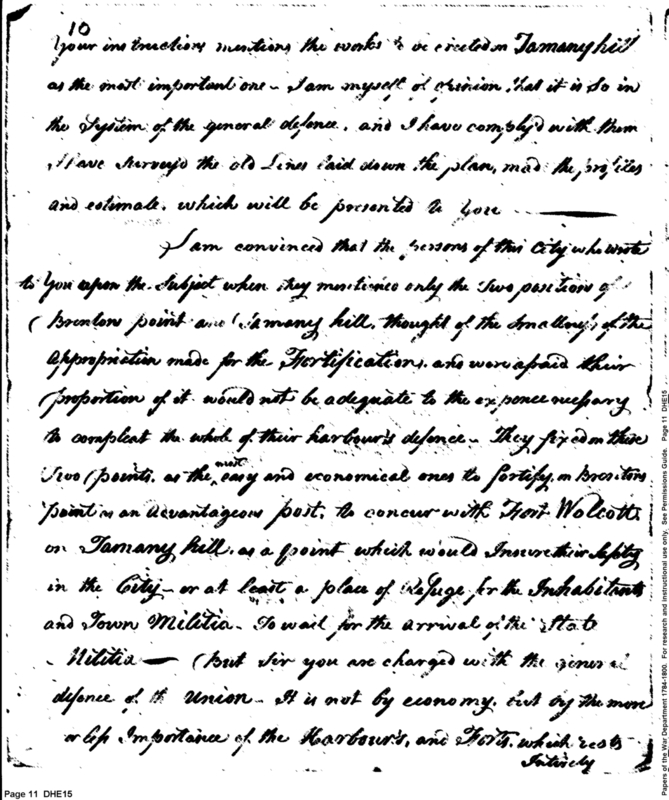 10
Your instructions mentions the works to be erected on Tamany hill
as the most important one - I am myself of opinion that it is so in
the System of the general defence, and I have comply'd with them
I Have Survey'd the old Lines laid down the plan, mad the profiles
and estimate, which will be presented to you
I am convinced that the persons of this City who wrote
to You upon the Subject when they mentioned only the two position of
Brenton point and Tamany hill, thought of the Smallony's of the
Appropriation made for the Fortifications, and were afraid their
proportion of it would not be adequate to the expence necessary
to compleat the whole of their harbour's defence - They fixed on these
two points, as the most easy and economical ones to fortify, on Brentons
point as an advantageous post, to concur with Fort Wolcott
on Tamany hill, as a point which would Insure their Safety
in the City - or at least a place of Refuge for the Inhabitants
and Town Militia - To wait for the arrival of the State
Militia - (But Sir you are charged with the general
defence of the Union - It is not by economy, but by the more
or less Importance of the Harbour's, and Forts, which rests
Intirely
Page 11 DHE15
Papers of the War Department 1784-1800. For research and instructional use only. See Permissions Guide. Page 11 DHE15